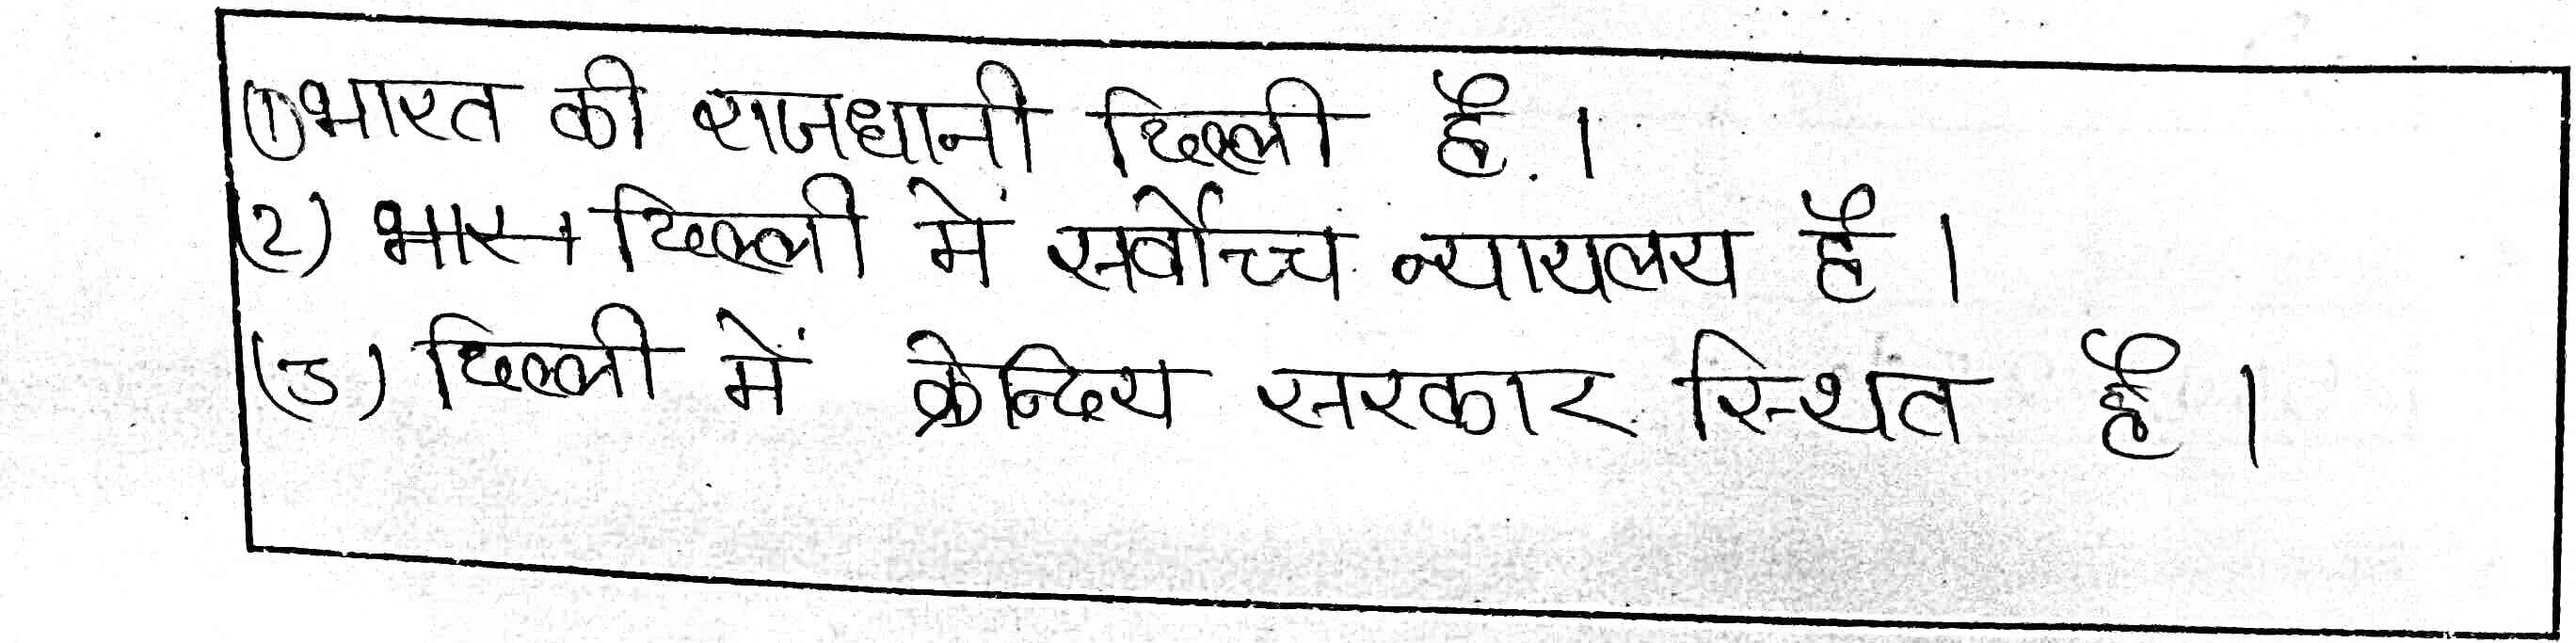 ① भारत की राजधानी दिल्ली है।
(2) दिल्ली में सर्वोच्च न्यायलय है।
(3) दिल्ली में क्रेन्दिय सरकार स्थित है।